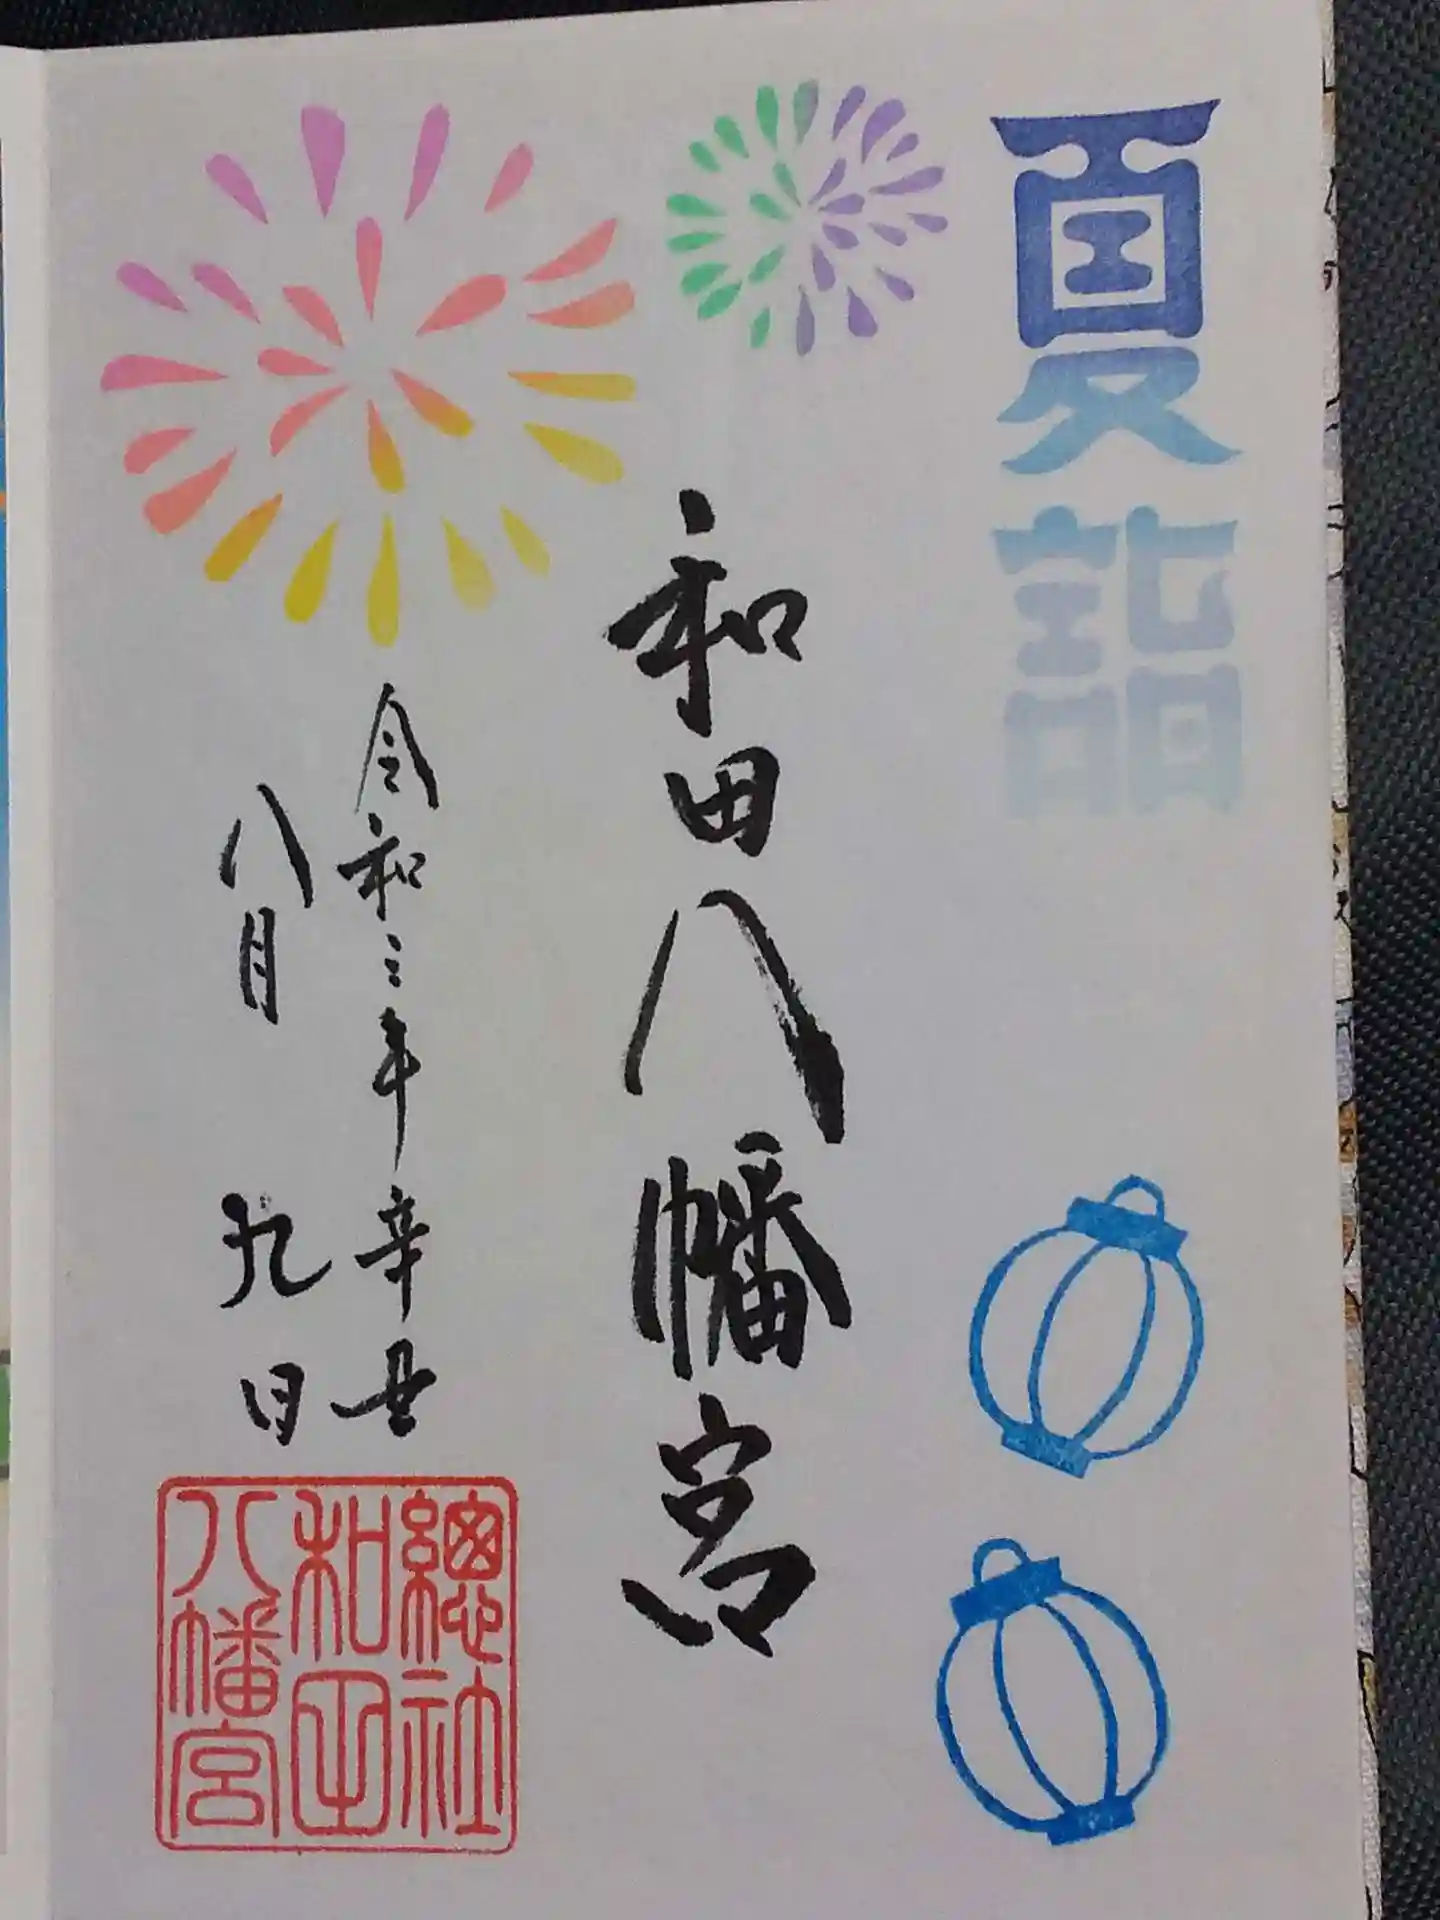 夏詣
和田八幡宮
令和三年辛丑
八月九日
總社
和田
八幡宮